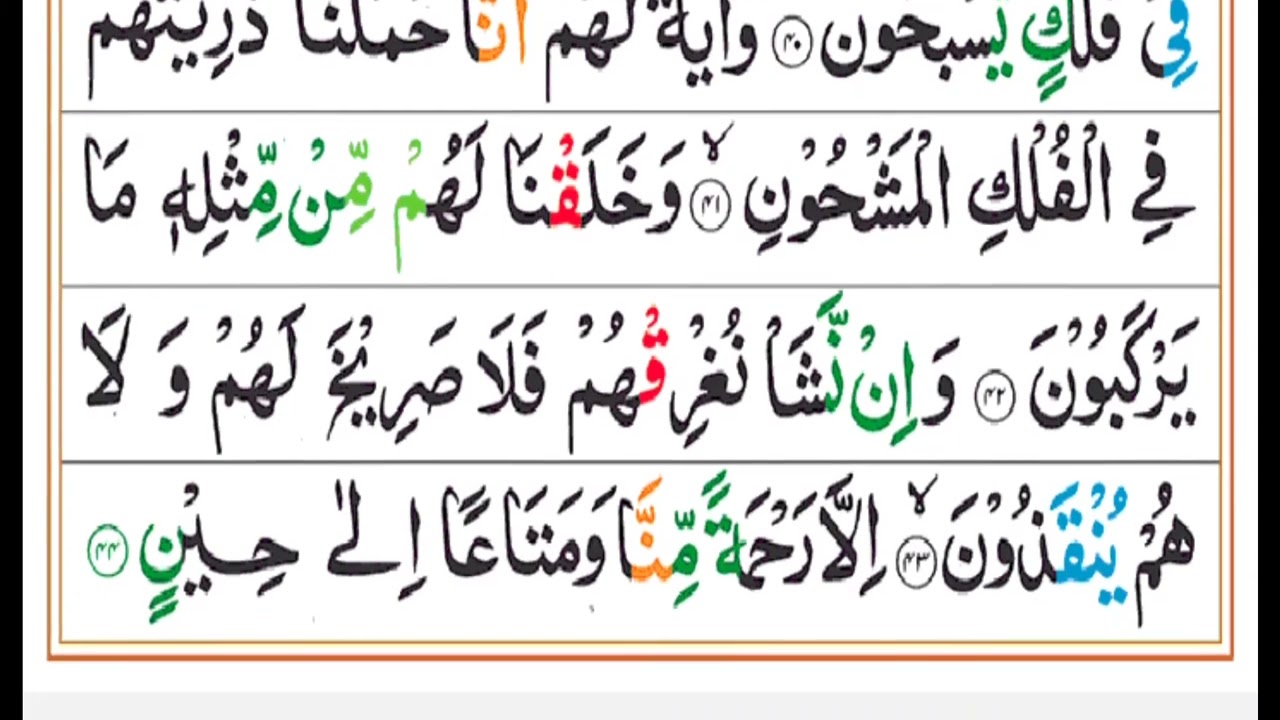 فِیْ فَلَكٍ یَّسْبَحُوْنَ ﴿۴۰﴾ وَاٰیَةٌ لَّهُمْ اَنَّا حَمَلْنَا ذُرِّیَّتَهُمْ
فِی الْفُلْكِ الْمَشْحُوْنِ ۙ﴿۴۱﴾ وَخَلَقْنَا لَهُمْ مِّنْ مِّثْلِهٖ مَا
یَرْكَبُوْنَ ﴿۴۲﴾ وَ اِنْ نَّشَاْ نُغْرِقْهُمْ فَلَا صَرِیْخَ لَهُمْ وَ لَا
هُمْ یُنْقَذُوْنَ ۙ﴿۴۳﴾ اِلَّا رَحْمَةً مِّنَّا وَمَتَاعًا اِلٰی حِیْنٍ ﴿۴۴﴾